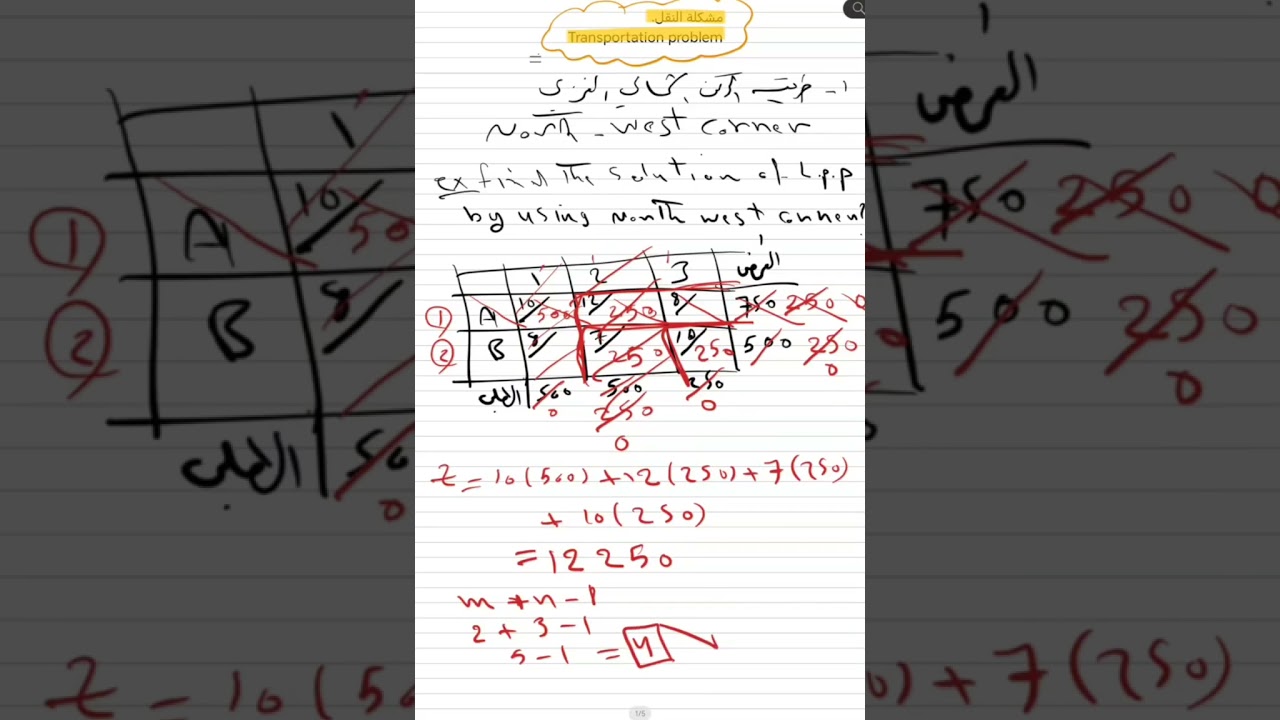 مشكلة النقل.
Transportation problem
١- طريقة الركن الشمالي الغربي
North - west corner
ex find the solution of L.p.p
by using North west corner?
1 2 3 العرض
① A 10 500 12 250 8 750 250 0
② B 8 7 250 10 250 500 250 0
الطلب 500 500 250
0 250 0
0
Z = 10(500) + 12(250) + 7(250)
+ 10(250)
= 12250
m + n - 1
2 + 3 - 1
5 - 1 = 4
1/5